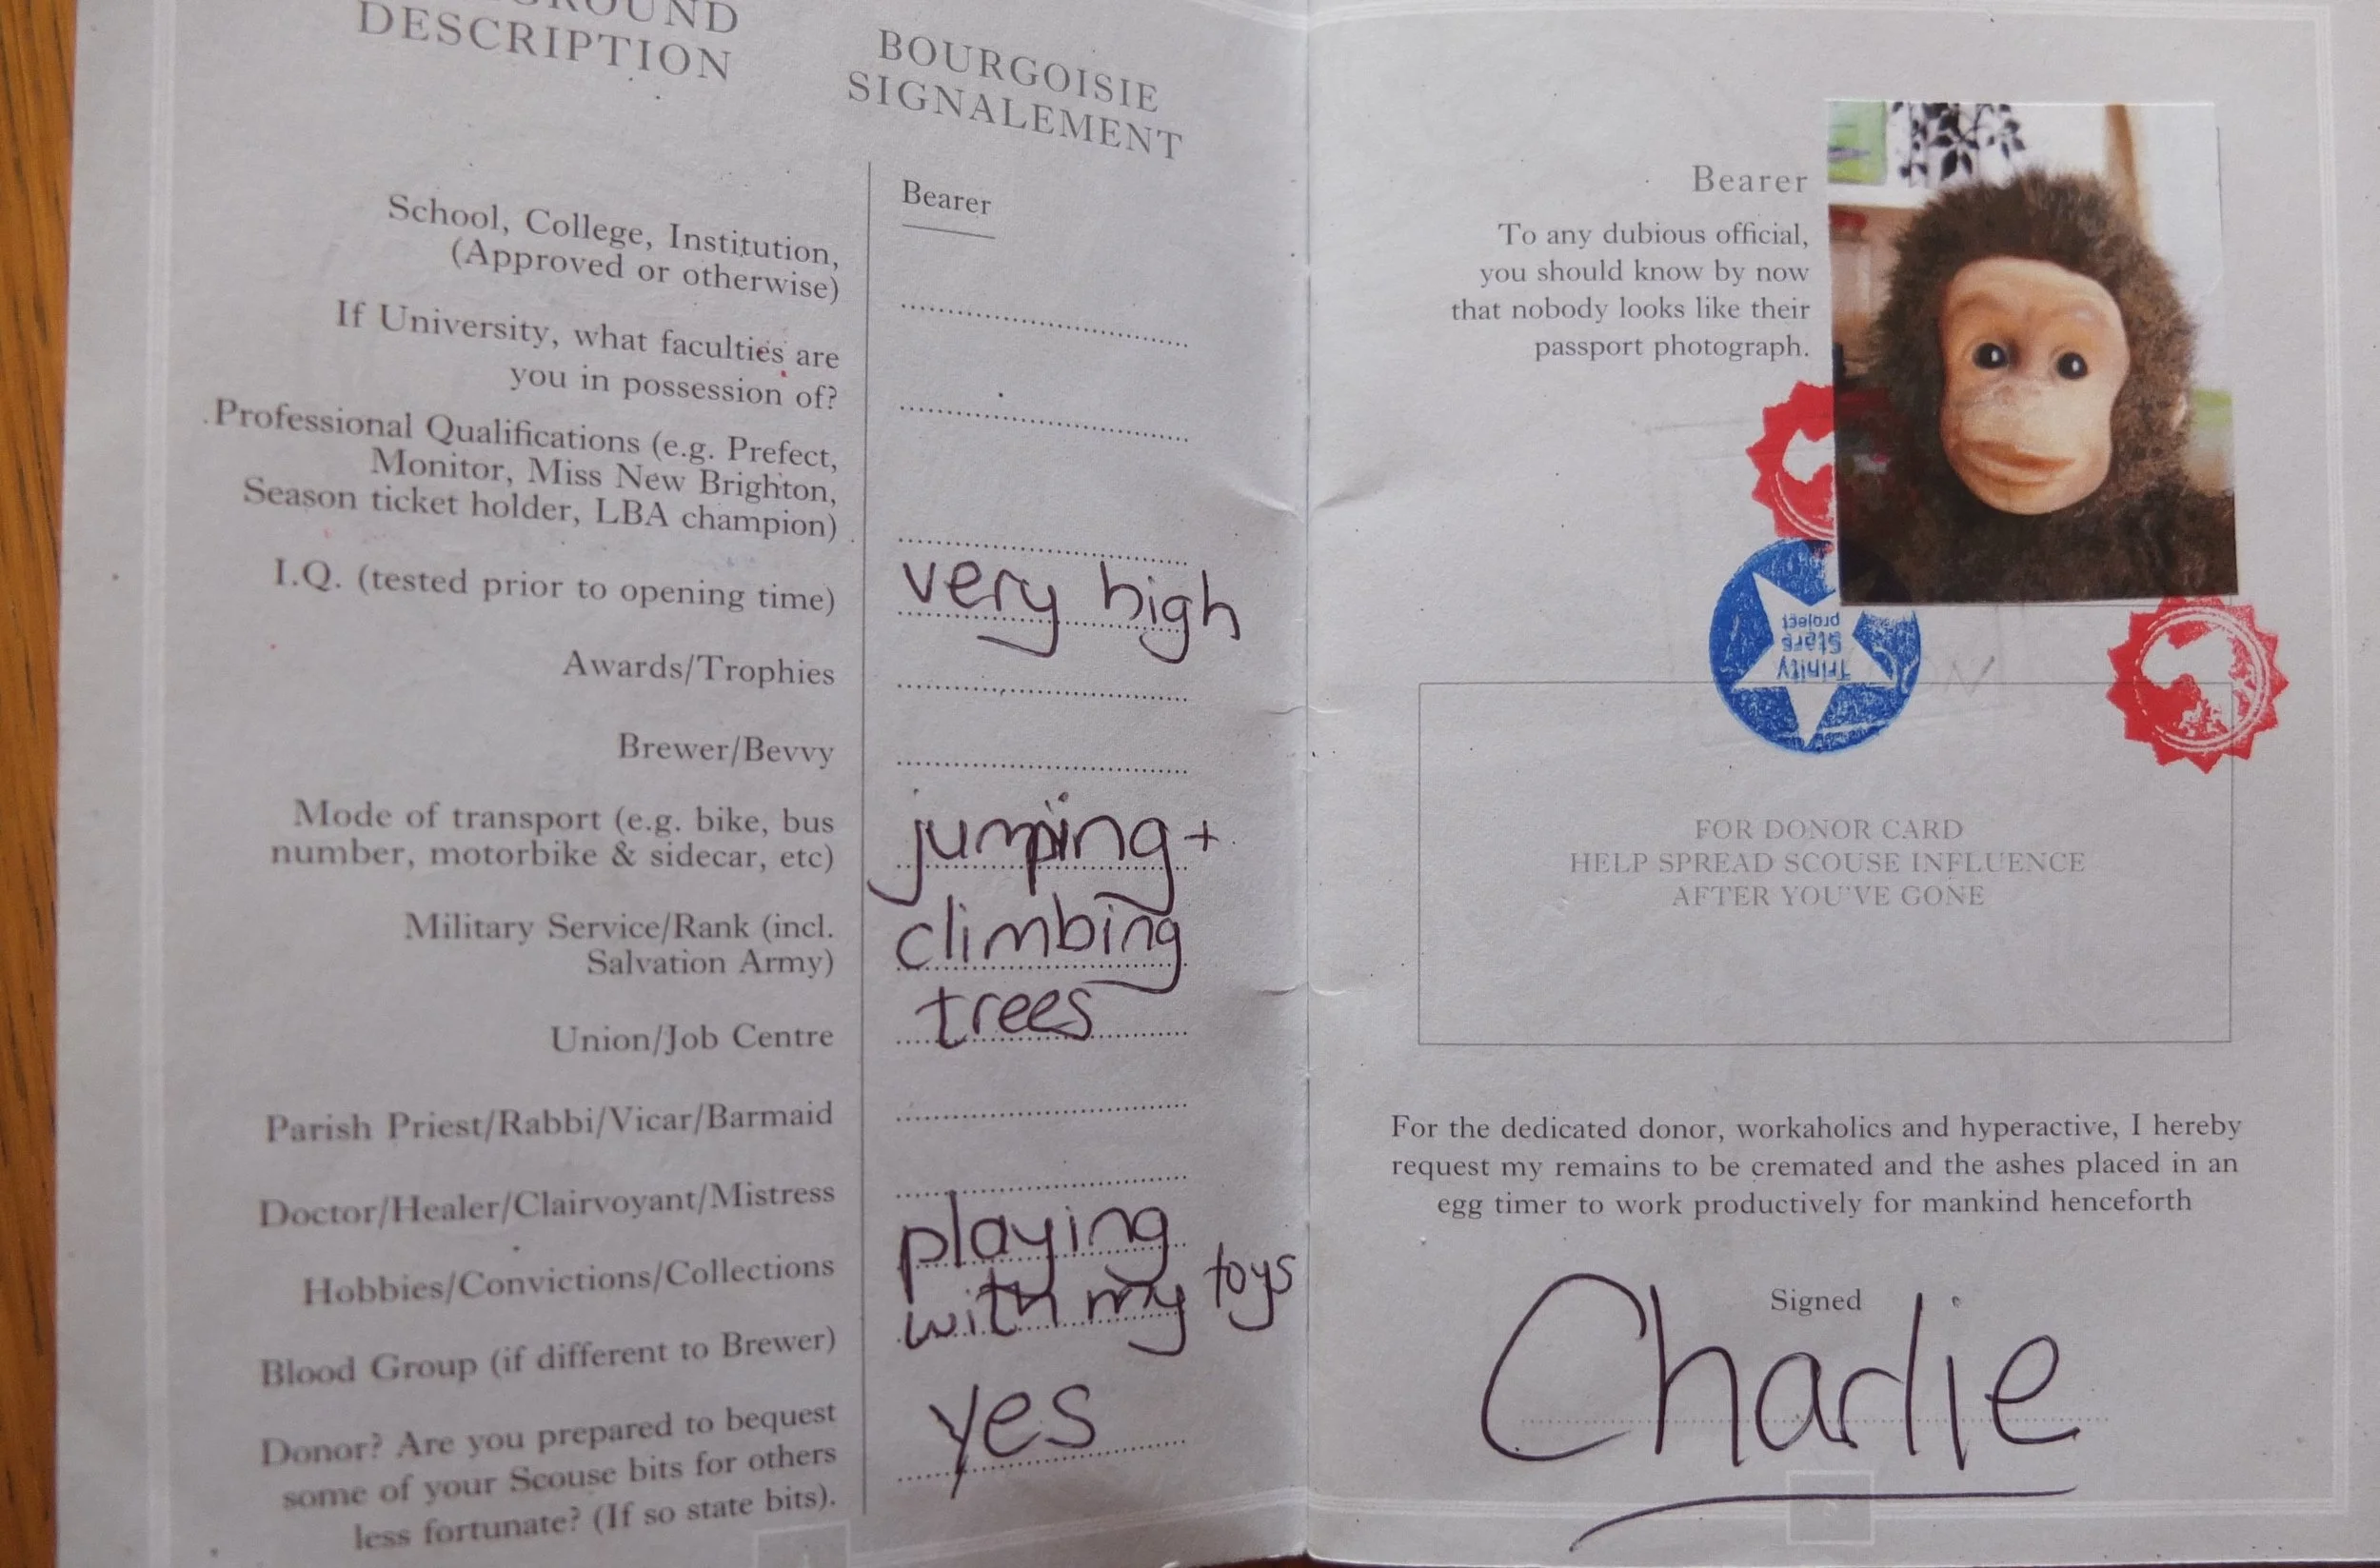 GROUND
DESCRIPTION
BOURGOISIE
SIGNALEMENT
Bearer
School, College, Institution,
(Approved or otherwise)
If University, what faculties are
you in possession of?
Professional Qualifications (e.g. Prefect,
Monitor, Miss New Brighton,
Season ticket holder, LBA champion)
I.Q. (tested prior to opening time)
very high
Awards/Trophies
Brewer/Bevvy
Mode of transport (e.g. bike, bus
number, motorbike & sidecar, etc)
jumping +
climbing
trees
Military Service/Rank (incl.
Salvation Army)
Union/Job Centre
Parish Priest/Rabbi/Vicar/Barmaid
Doctor/Healer/Clairvoyant/Mistress
Hobbies/Convictions/Collections
playing
with my toys
Blood Group (if different to Brewer)
Donor? Are you prepared to bequest
some of your Scouse bits for others
less fortunate? (If so state bits).
yes
Bearer
To any dubious official,
you should know by now
that nobody looks like their
passport photograph.
Trinity
Stars
project
FOR DONOR CARD
HELP SPREAD SCOUSE INFLUENCE
AFTER YOU'VE GONE
For the dedicated donor, workaholics and hyperactive, I hereby
request my remains to be cremated and the ashes placed in an
egg timer to work productively for mankind henceforth
Signed
Charlie